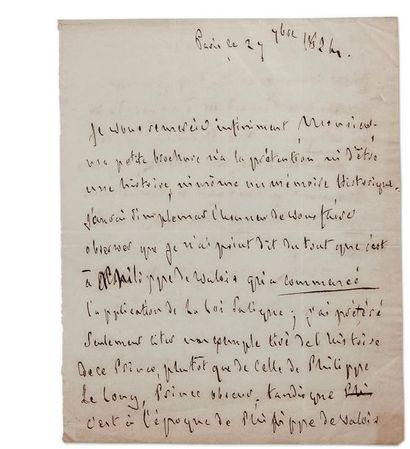 Paris le 27 7bre 1824.
Je vous remercie infiniment Monsieur.
ma petite brochure n'a la prétention ni d'être
une histoire, ni même un mémoire historique.
J'aurai simplement l'honneur de vous faire
observer que je n'ai point dit du tout que c'est
à Philippe de Valois qu'a commencé
l'application de la loi Salique; j'ai préféré
seulement citer un exemple tiré de l'histoire
de ce Prince, plutôt que de celle de Philippe
Le Long, Prince obscur, tandis que
c'est à l'époque de Philippe de Valois